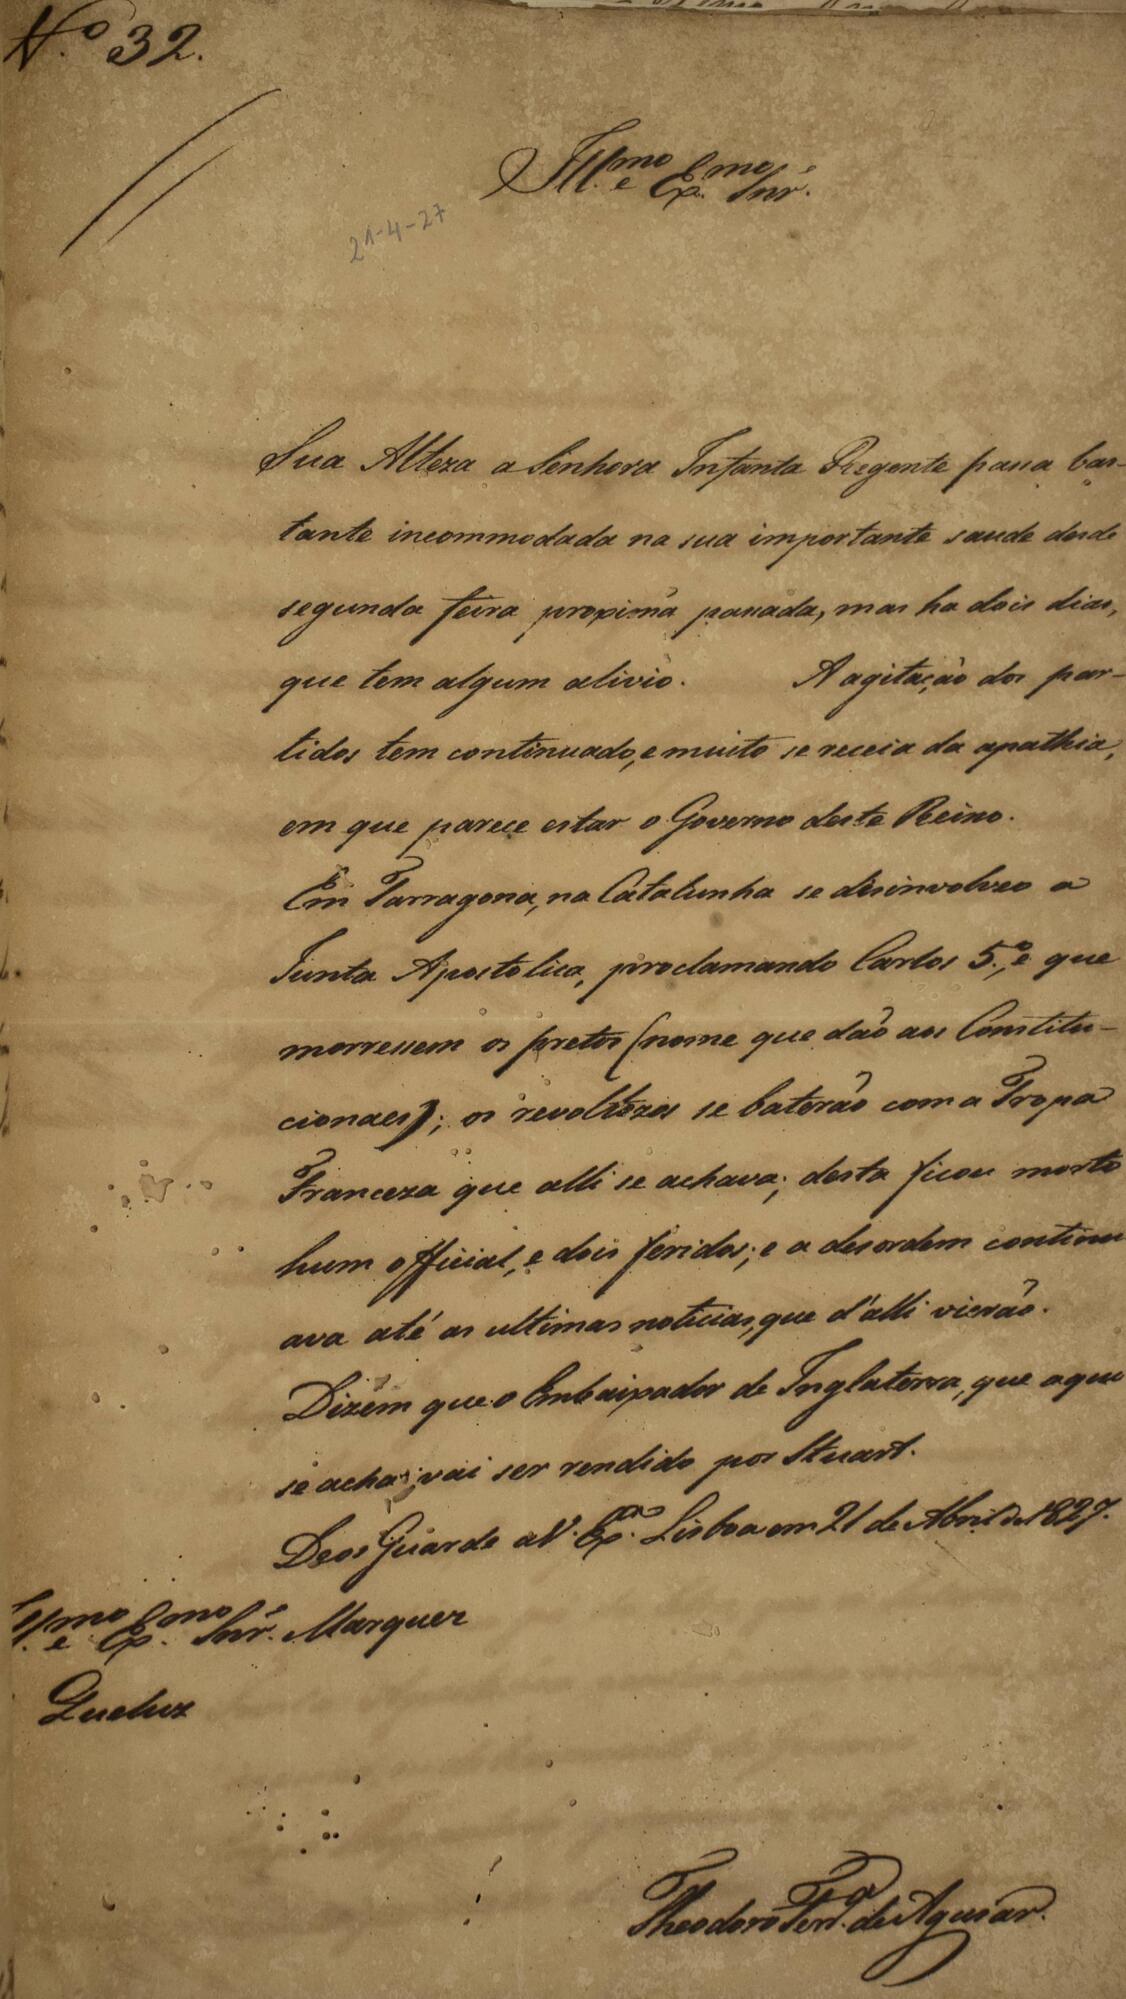 N.º 32.
Ill.mo e Ex.mo Snr.
21-4-27
Sua Alteza a Senhora Infanta Regente passa bas-
tante incommodada na sua importante saude desde
segunda feira proxima passada, mas ha dois dias,
que tem algum alivio. A agitação dos par-
tidos tem continuado, e muito se receia da apathia,
em que parece estar o Governo deste Reino.
Em Tarragona, na Catalunha se desinvolveo a
Junta Apostolica, proclamando Carlos 5.º, e que
morressem os pretos (nome que dão aos Constitu-
cionaes); os revoltozos se baterão com a Tropa
Franceza que alli se achava; desta ficou morto
hum official, e dois feridos; e a desordem continu
ava até as ultimas noticias, que d'alli vierão.
Dizem que o Embaixador de Inglaterra, que aqui
se acha, vai ser rendido por Stuart.
Deos Guarde a V. Ex.ª Lisboa em 21 de Abril de 1827.
Ill.mo e Ex.mo Snr. Marquez
Queluz
Theodoro Ferr.ª de Aguiar.